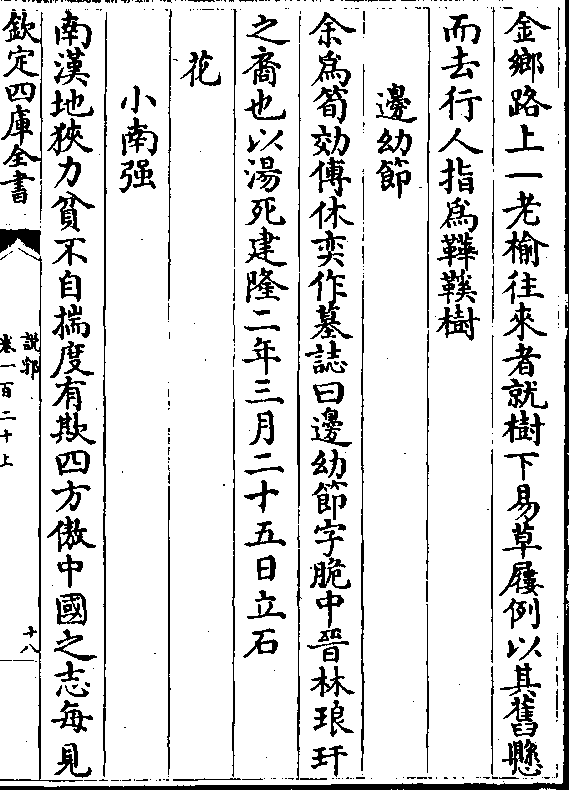 金鄉路上一老榆往來者就樹下易草屨例以其舊懸
而去行人指為鞾鞵樹
邊幼節
余為筍効傅休奕作墓誌曰邊幼節字脆中晉林琅玕
之裔也以湯死建隆二年三月二十五日立石
花
小南强
南漢地狹力貧不自揣度有欺四方傲中國之志每見
欽定四庫全書
說郛
卷一百二十上
十八